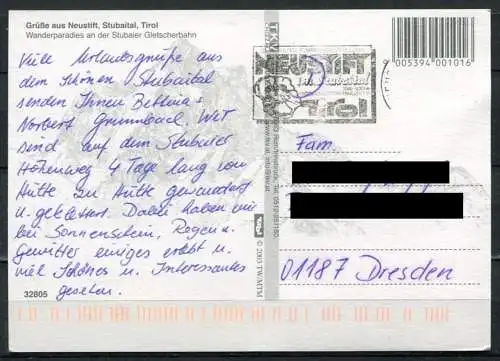 Grüße aus Neustift, Stubaital, Tirol
Wanderparadies an der Stubaier Gletscherbahn
Viele Urlaubsgrüße aus
dem schönen Stubaital
senden Ihnen Bettina +
Norbert Grumbach. Wir
sind auf dem Stubaier
Höhenweg 4 Tage lang von
Hütte zu Hütte gewandert
u. geklettert. Dabei haben wir
bei Sonnenschein, Regen u.
Gewitter einiges erlebt u.
viel Schönes u. Interessantes
gesehen.
32805
© 2003 TW-MTM
NEUSTIFT
im Stubaital
Tirol
005394 001016
Fam.
01187 Dresden